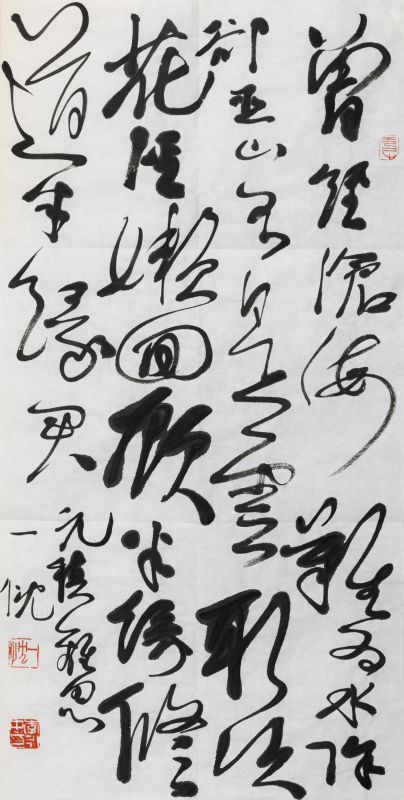 曾經滄海難為水除
卻巫山不是雲取次
花叢懶回顧半緣修
道半緣君
元稹離思
一